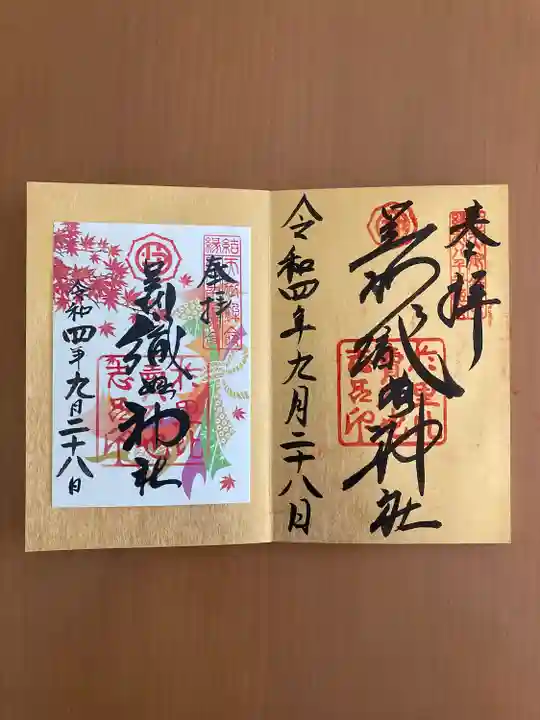 奉拝
足利織姫神社
令和四年九月二十八日
奉拝
足利織姫神社
令和四年九月二十八日